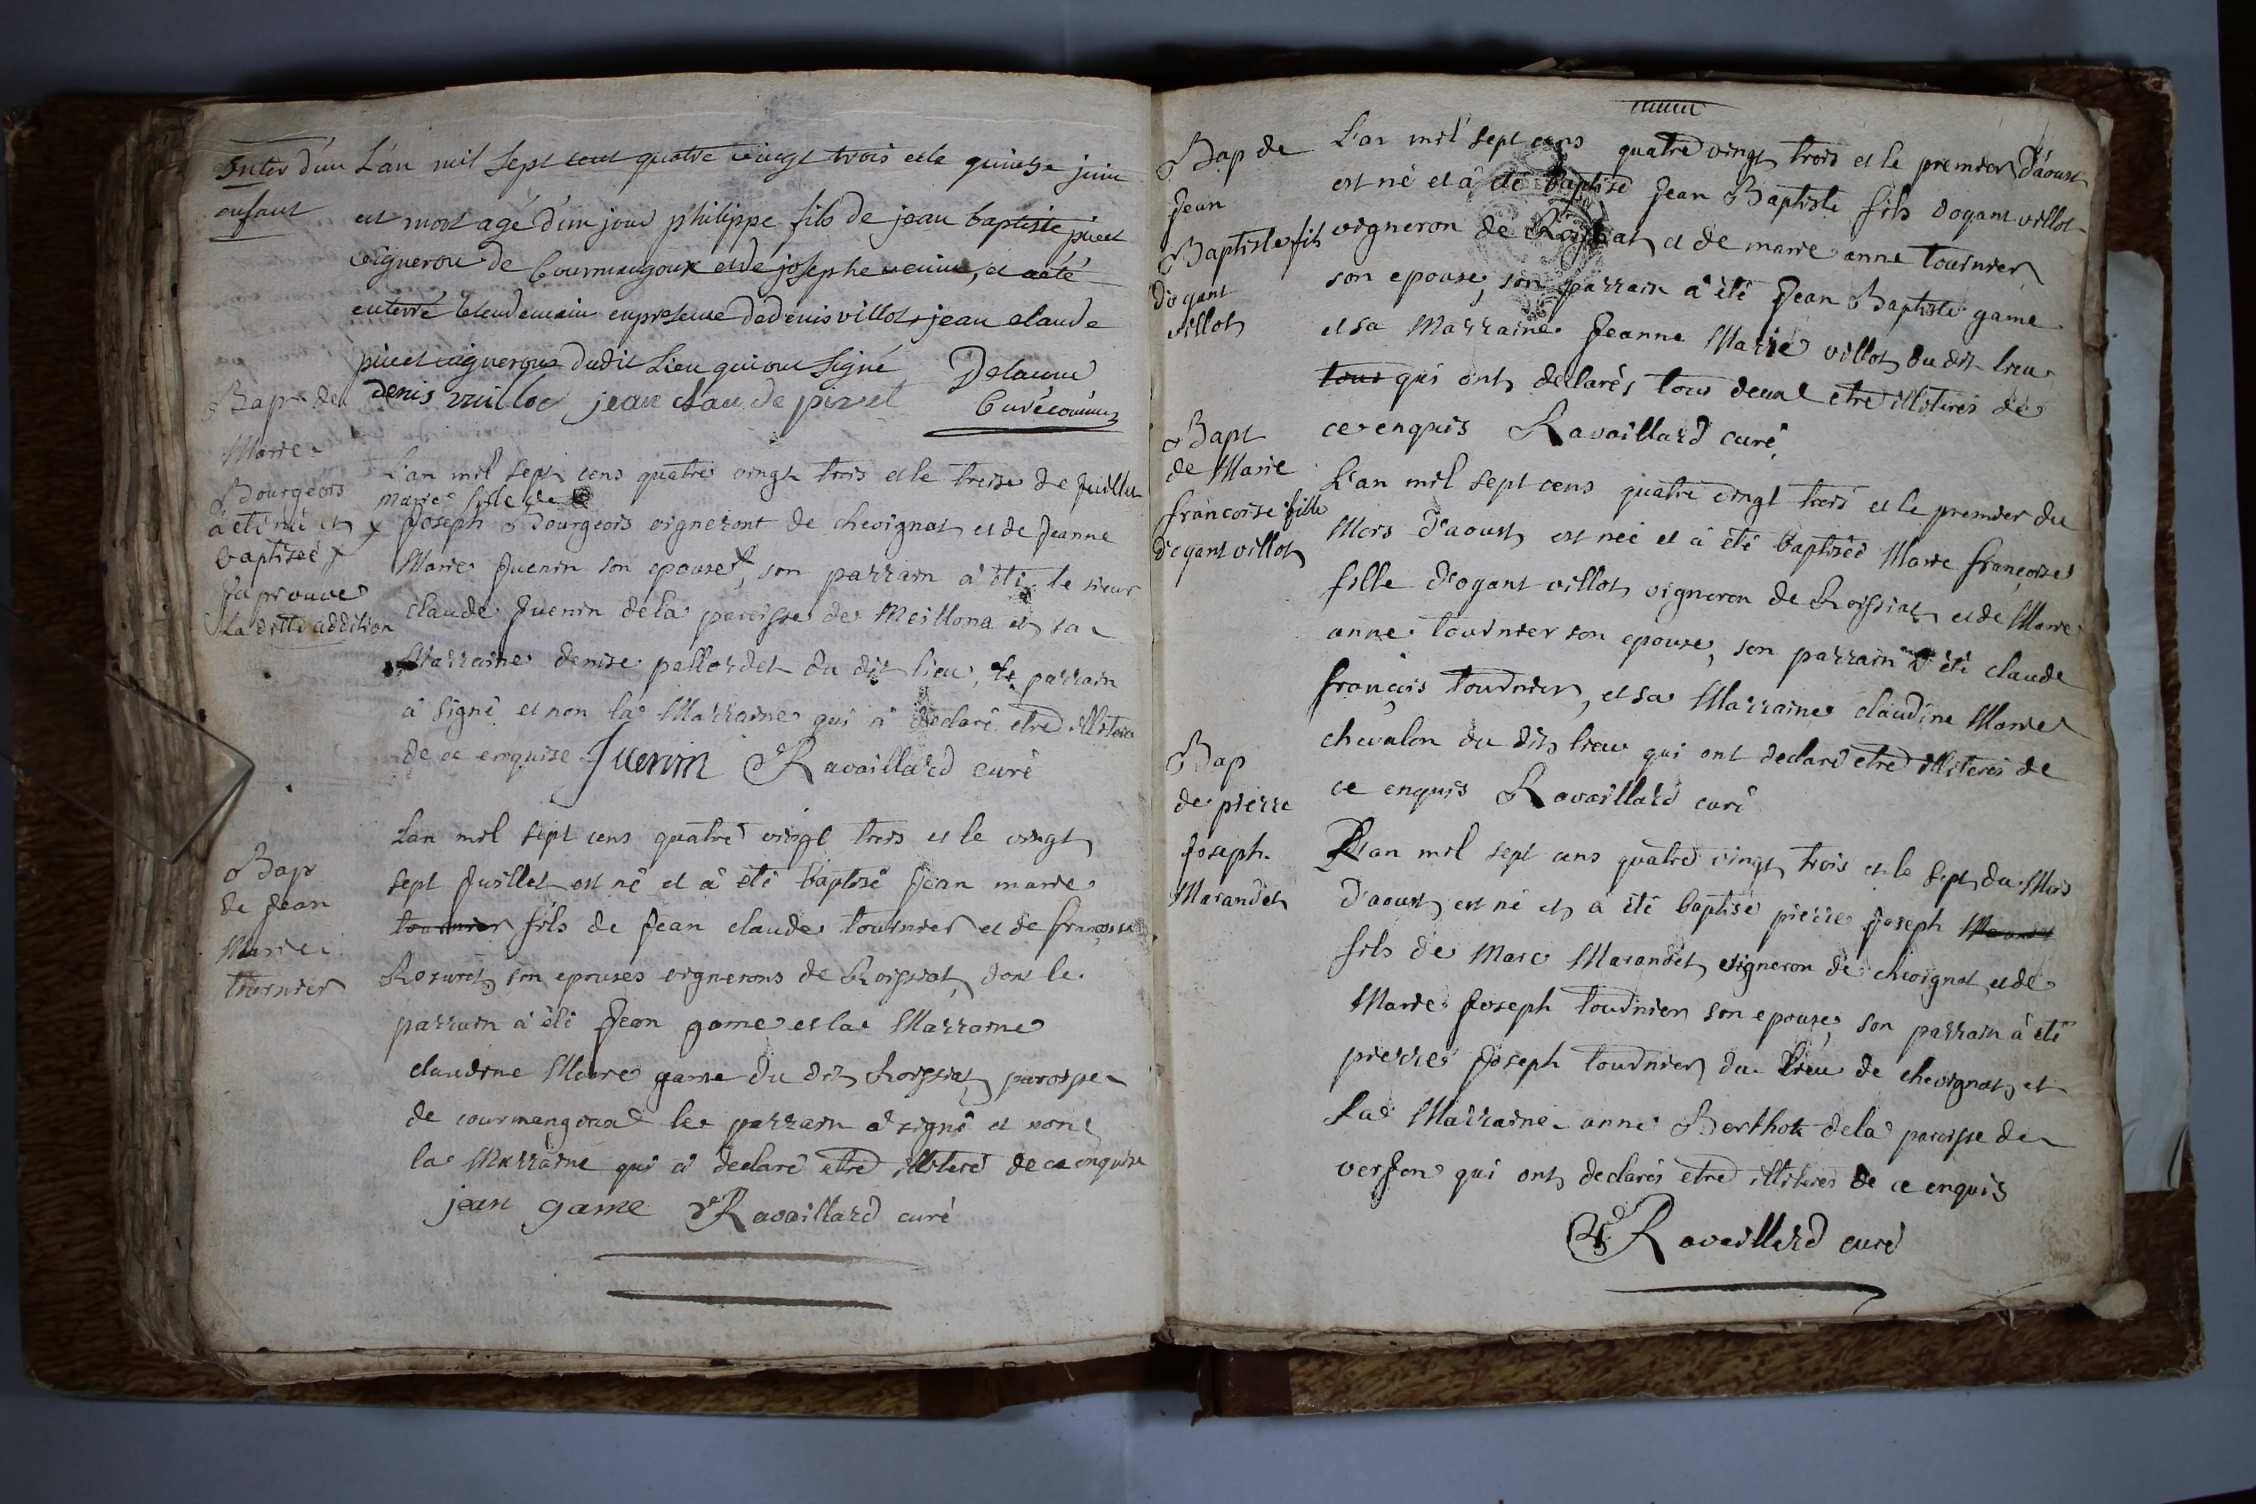 Enter d'un
enfant
L'an mil sept cent quatre vingt trois et le quinze juin
est mort agé d'un jour philippe fils de jean baptiste pivet
vigneron de Courmangoux et de josephe, et a été
enterré le lendemain en presence de denis villot, jean claude
pivet vignerons dudit Lieu qui ont signé
denis vuillot jean claude pivet
Delaune
Curé commis
Bap de
Marie
Bourgeois
à été née et
baptiseé
J'aprouve
la ditte addition
L'an mil sept cens quatre vingt trois et le treise de Juillet
marie fille de
Joseph Bourgeois vigneront de chevignat et de Jeanne
Marie Juenin son epouse, son parrain à été le sieur
claude Juenin de la paroisse de Meillona et sa
Marraine denise pallordet du dit lieu, le parrain
à signé et non la Marraine qui à declaré etre illiteré
de ce enquise Juenin Ravaillard curé
Bap
de Jean
Marie
tournier
L'an mil sept cens quatre vingt trois et le vingt
sept Juillet est né et à été baptisé Jean marie
tournier fils de Jean claude tournier et de francoise
Rosuret son epouses vignerons de Roissiat dont le
parrain à été Jean game et la Marraine
claudine Marie game du dit Roissiat paroisse
de courmangoux le parrain à signé et non
la Marraine qui à declaré etre illiteré de ce enquise
jean game Ravaillard curé
Bap de
Jean
Baptiste fils
d'ogant
villot
L'an mil sept cens quatre vingt trois et le premier d'aoust
est né et à été baptisé Jean Baptiste fils d'ogant villot
vigneron de Roissiat et de marie anne tournier
son epouse, son parrain à été Jean Baptiste game
et sa Marraine Jeanne Marie villot du dit lieu
tous qui ont declarés tous deux etre illiterés de
ce enquis Ravaillard curé
Bapt
de Marie
francoise fille
d'ogant villot
L'an mil sept cens quatre vingt trois et le premier du
Mois d'aoust est née et à été baptisée Marie françoise
fille d'ogant villot vigneron de Roissiat et de Marie
anne tournier son epouse, son parrain à été claude
françois tournier, et sa Marraine claudine Marie
chevalon du dit lieu qui ont declaré etre illiterés de
ce enquis Ravaillard curé
Bap
de pierre
Joseph
Marandet
L'an mil sept cens quatre vingt trois et le sept du Mois
d'aoust est né et a été baptisé pierre Joseph
fils de Marc Marandet vigneron de chevignat et de
Marie Joseph tournier son epouse, son parrain à été
pierre Joseph tournier du lieu de chevignat, et
sa Marraine anne Berthot de la paroisse de
verjon qui ont declarés etre illiterés de ce enquis
Ravaillard curé